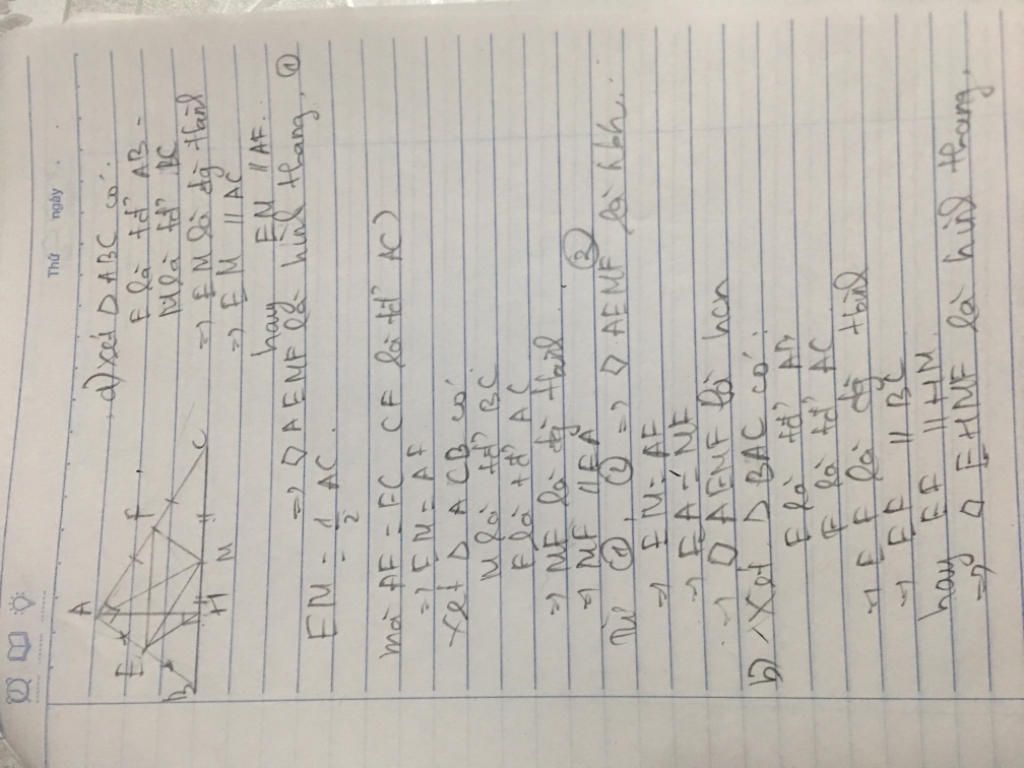 Thứ ngày
A
E
F
B
H
M
C
a) xét Δ ABC có:
E là tđ' AB
M là tđ' BC
=> EM là đg tbình
=> EM // AC
hay EM // AF.
=> ◊ AEMF là hình thang. ①
EM = 1/2 AC
mà AF = FC CF là tđ' AC)
=> EM = AF
Xét Δ ACB có
M là tđ' BC
F là tđ' AC
=> MF là đg tbình
=> MF // EA ②
Từ ①, ② => ◊ AEMF là hbh.
=> EM = AF
=> EA = MF
=> ◊ AEMF là
b) Xét Δ BAC có:
E là tđ' AB
F là tđ' AC
=> EF là đg tbình
=> EF // BC
hay EF // HM
=> ◊ EHMF là hình thang.